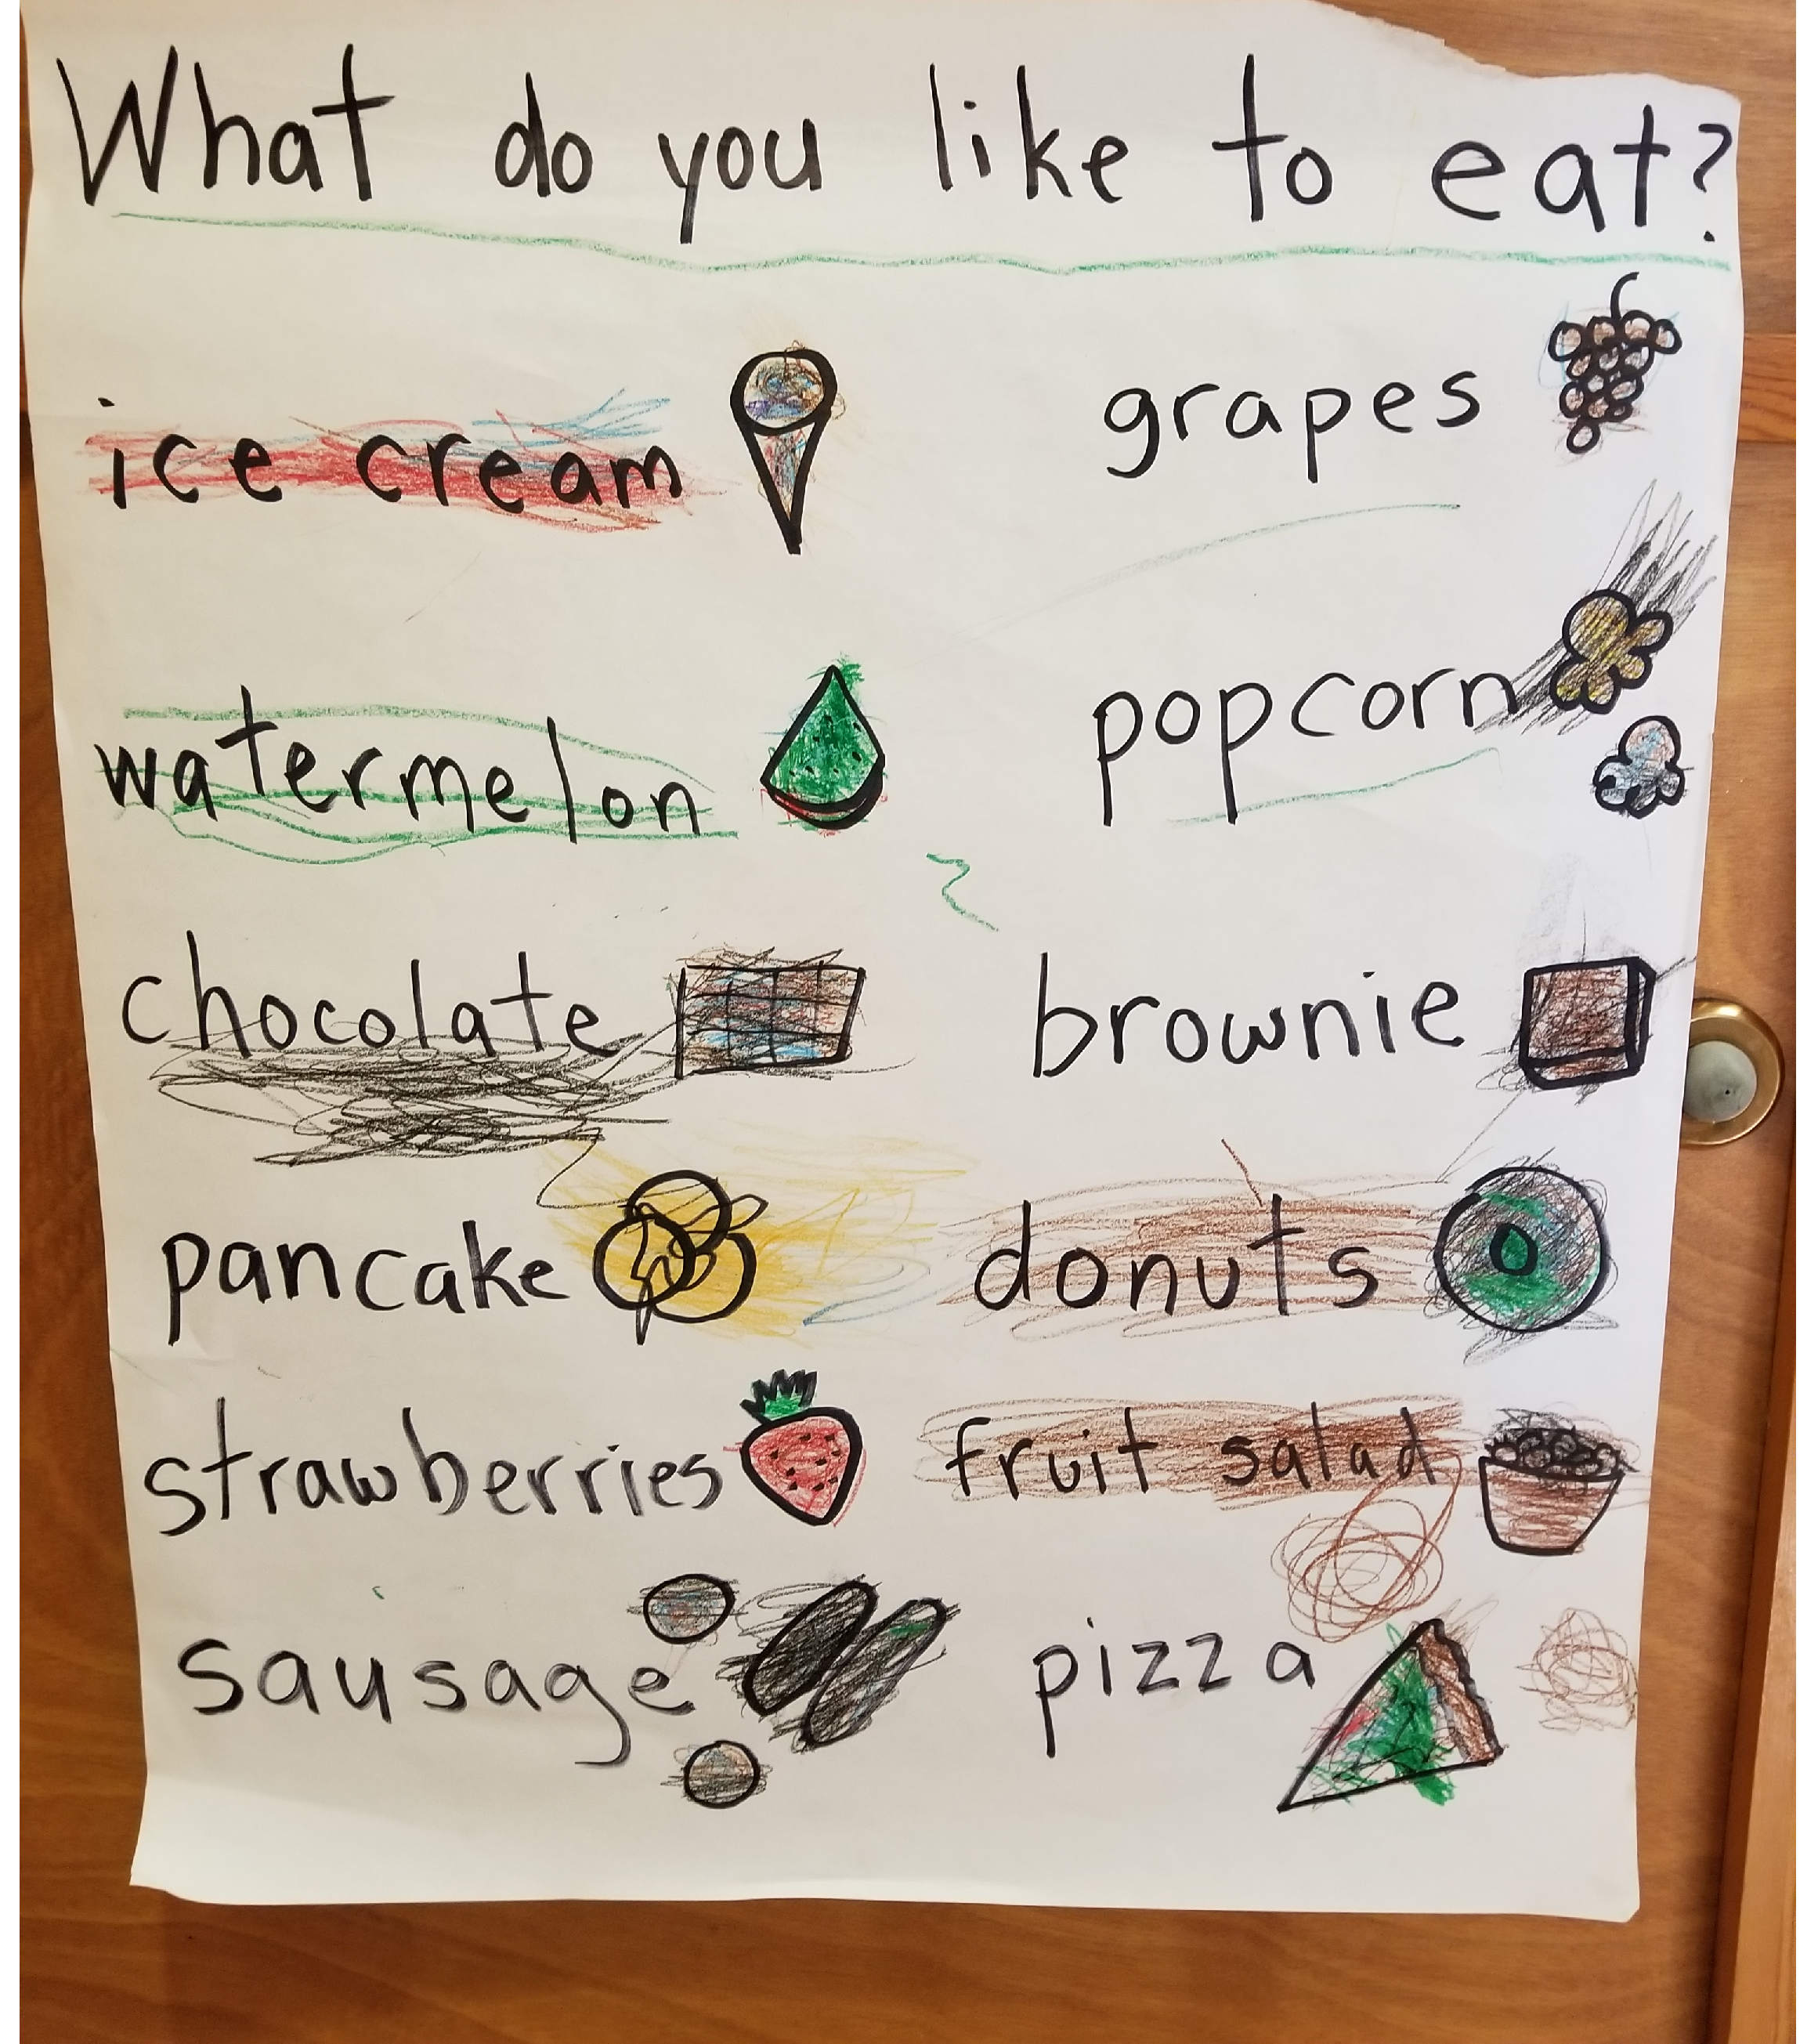 What do you like to eat?
ice cream
grapes
watermelon
popcorn
chocolate
brownie
pancake
donuts
strawberries
fruit salad
sausage
pizza